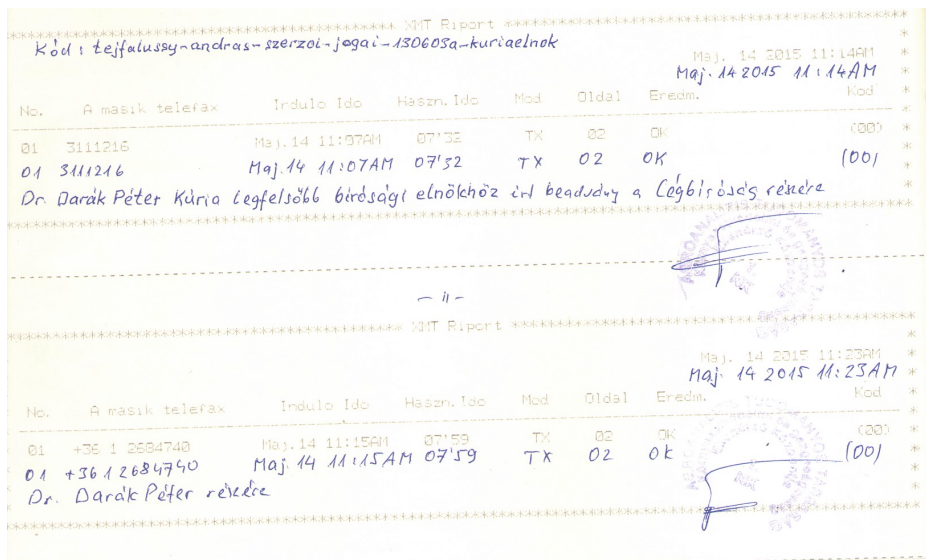 XMT Riport
Kód: tejfalussy-andras-szerzoi-jogai-130603a-kuriaelnok
Maj. 14 2015 11:14AM
Maj. 14 2015 11:14AM
No. A masik telefax Indulo Ido Haszn.Ido Mod Oldal Eredm. Kod
01 3111216 Maj.14 11:07AM 07'32 TX 02 OK (00)
01 3111216 Maj.14 11:07AM 07'32 TX 02 OK (00)
Dr. Darák Péter Kúria legfelsőbb bírósági elnökhöz írt beadvány a Cégbíróság részére
- 11 -
XMT Riport
Maj. 14 2015 11:23AM
Maj. 14 2015 11:23AM
No. A masik telefax Indulo Ido Haszn.Ido Mod Oldal Eredm. Kod
01 +36 1 2684740 Maj.14 11:15AM 07'59 TX 02 OK (00)
01 +36 1 2684740 Maj.14 11:15AM 07'59 TX 02 OK (00)
Dr. Darák Péter részére